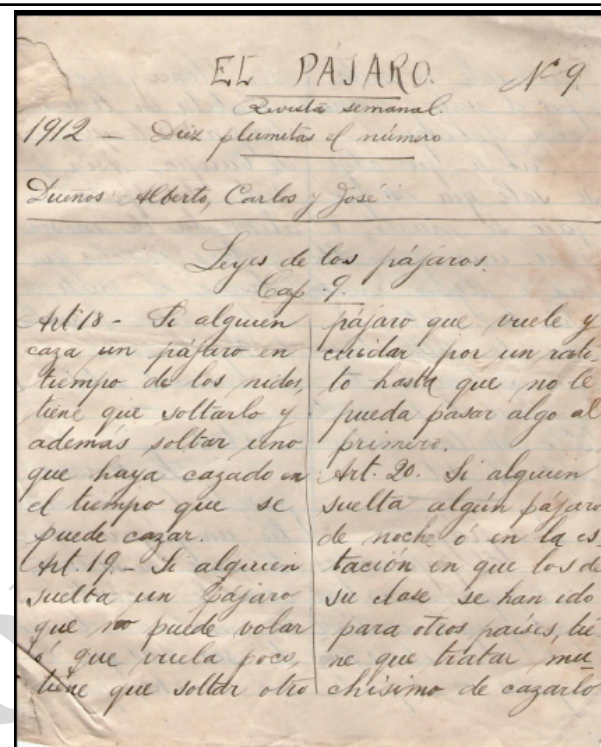 EL PÁJARO. Nº 9
Revista semanal.
1912 — Diez plumitas el número
Dueños: Alberto, Carlos y José
Leyes de los pájaros.
Cap. 9.
Art 18 - Si alguien
caza un pájaro en
tiempo de los nidos,
tiene que soltarlo y
además soltar uno
que haya cazado en
el tiempo que se
puede cazar.
Art. 19. - Si alguien
suelta un pájaro
que no puede volar
ó que vuela poco,
tiene que soltar otro
pájaro que vuele y
cuidar por un rati-
to hasta que no le
pueda pasar algo al
primero.
Art. 20. Si alguien
suelta algún pájaro
de noche ó en la es-
tación en que los de
su clase se han ido
para otros países, tie
ne que tratar mu
chísimo de cazarlo